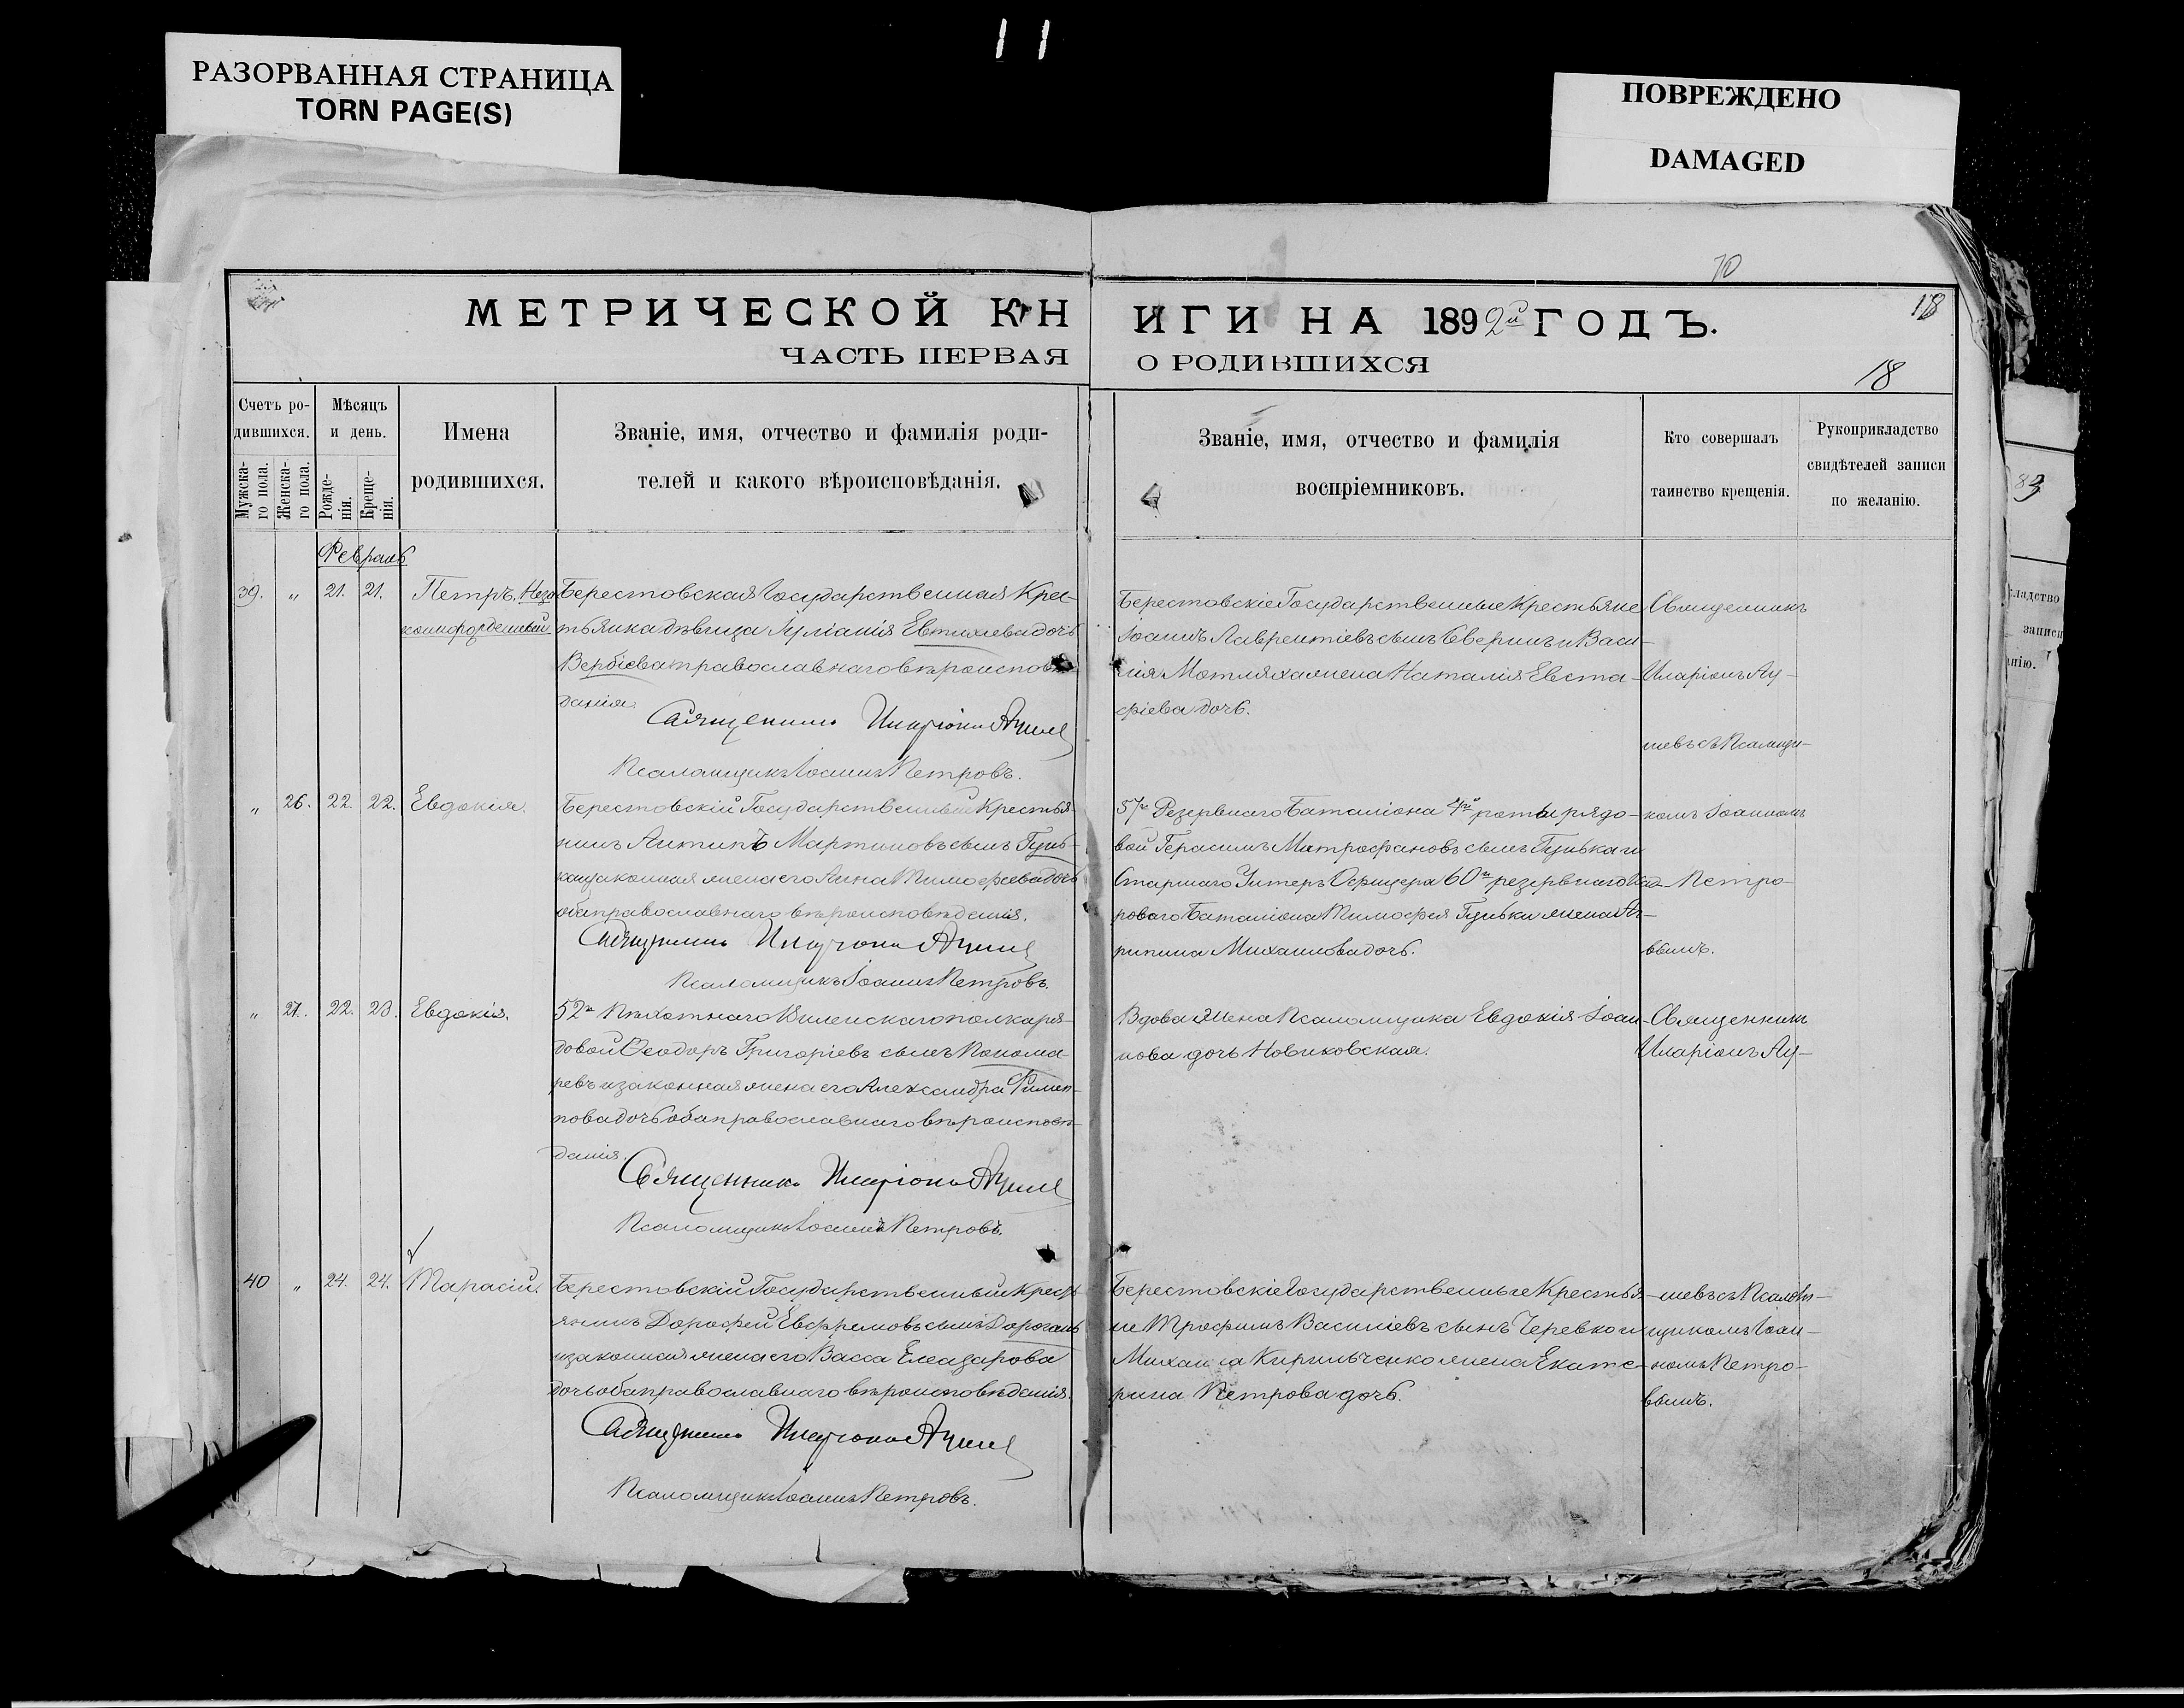 11
РАЗОРВАННАЯ СТРАНИЦА
TORN PAGE(S)
ПОВРЕЖДЕНО
DAMAGED
10
18
МЕТРИЧЕСКОЙ КНИГИ НА 1892й ГОДЪ.
ЧАСТЬ ПЕРВАЯ О РОДИВШИХСЯ
18
Счетъ ро-
дившихся.
Мужска-
го пола.
Женска-
го пола.
Мѣсяцъ
и день.
Рожде-
нія.
Креще-
нія.
Имена
родившихся.
Званіе, имя, отчество и фамилія роди-
телей и какого вѣроисповѣданія.
Званіе, имя, отчество и фамилія
воспріемниковъ.
Кто совершалъ
таинство крещенія.
Рукоприкладство
свидѣтелей записи
по желанію.
Февраль
39. " 21. 21. Петръ. Неза
коннорожденный
Берестовская Государственная Крес-
тьянка дѣвица Іуліанія Евтихіева дочь
Вербіева православнаго вѣроисповѣ-
данія.
Священникъ Иларіонъ
Псаломщикъ Іоаннъ Петровъ.
Берестовскіе Государственные Крестьяне
Іоаннъ Лаврентіевъ сынъ и Васи-
лія жена Наталія Евста-
фіева дочь.
Священникъ
Иларіонъ Ау-
шевъ съ Псаломщи-
" 26. 22. 22. Евдокія.
Берестовскій Государственный Крестья-
нинъ Антипъ Мартиновъ сынъ Гунь-
ка и законная жена его Анна Тимофеева дочь
оба православнаго вѣроисповѣданія.
Священникъ Иларіонъ
Псаломщикъ Іоаннъ Петровъ.
57го Резервнаго Баталіона 4й роты рядо-
вой Герасимъ Митрофановъ сынъ Гунька и
Старшаго Унтеръ Офицера 60го резервнаго Кад-
роваго Баталіона Тимофея Гуньки жена Аг-
рипина Михаилова дочь.
комъ Іоанномъ
Петро-
вымъ.
" 27. 22. 23. Евдокія.
52го Пѣхотнаго Виленскаго полка ря-
довой Ѳеодоръ Григоріевъ сынъ Понома-
ревъ и законная жена его Александра Филип-
пова дочь оба православнаго вѣроисповѣ-
данія.
Священникъ Иларіонъ
Псаломщикъ Іоаннъ Петровъ.
Вдова жена Псаломщика Евдокія Іоан-
нова дочь Новиковская.
Священникъ
Иларіонъ Ау-
40 " 24. 24. Тарасій.
Берестовскій Государственный Кресть-
янинъ Дорофей Евфремовъ сынъ Дорогань
и законная жена его Васса Елеазарова
дочь оба православнаго вѣроисповѣданія.
Священникъ Иларіонъ
Псаломщикъ Іоаннъ Петровъ.
Берестовскіе Государственные Крестья-
не Трофимъ Василіевъ сынъ Черевко и
Михаила Кирильченко жена Екате-
рина Петрова дочь.
шевъ съ Псалом-
щикомъ Іоан-
номъ Петро-
вымъ.